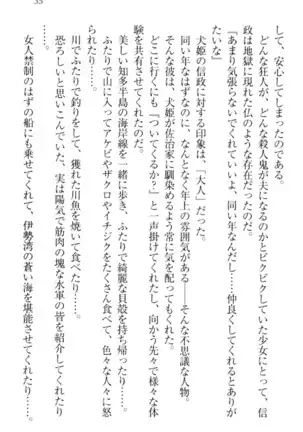 35
して、安心してしまったのである。
どんな狂人が、どんな殺人鬼が夫になるのかとビクビクしていた少女にとって、信
政は地獄に現れた仏のような存在だった。
「あまり気張らないでくれていいよ、同い年なんだし――仲良くしてくれるとありが
たいな」
犬姫の信政に対する印象は、「大人」だった。
同い年なはずなのに、なんとなく年上の雰囲気がある――そんな不思議な人物。
そんな彼は、犬姫が佐治家に馴染めるよう常に気を配ってもくれた。
どこに行くにも「ついてくるか?」と一声掛けてくれたし、向かう先々で様々な体
験を共有させてくれたのだ。
美しい知多半島の海岸線を一緒に歩き、ふたりで綺麗な貝殻を持ち帰ったり――。
ふたりで山に入ってアケビやザクロやイチジクをたくさん食べて、色々な人々に怒
られたり――。
川でふたりで釣りをして、獲れた川魚を焼いて食べたり――。
恐ろしいと思いこんでいた、実は陽気で筋肉の塊な水軍の皆を紹介してくれたり
女人禁制のはずの船にも乗せてくれて、伊勢湾の蒼い海を堪能させてくれたり――。